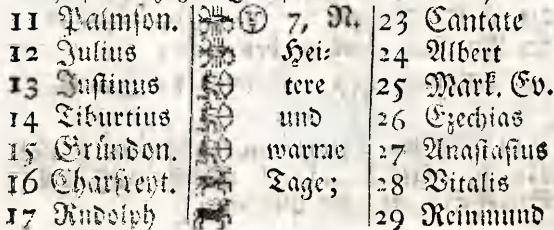 11 Palmson. Ⓨ 7, N. 23 Cantate
12 Julius Hei⸗ 24 Albert
13 Justinus tere 25 Mark. Ev.
14 Tiburtius und 26 Ezechias
15 Gründon. warme 27 Anastasius
16 Charfreyt. Tage; 28 Vitalis
17 Rudolph 29 Reinmund